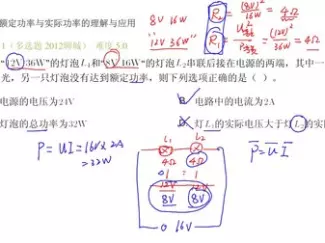 额定功率与实际功率的理解与应用
8V 16W
"12V 36W"
R₁ = (8V)²/16W = 4Ω
R₁ = U额²/P额 = (12V)²/36W = 4Ω
1(多选题 2012聊城) 难度 5.0
"12V 36W"的灯泡L₁和"8V 16W"的灯泡L₂串联后接在电源的两端,其中一
光,另一只灯泡没有达到额定功率,则下列选项正确的是( )。
电源的电压为24V
电路中的电流为2A
灯泡的总功率为32W
灯L₁的实际电压大于灯L₂的实
P = UI = 16V × 2A
= 32W
P = U I
L₁ L₂
4Ω 4Ω
1 : 1
12V 12V
8V 8V
16V